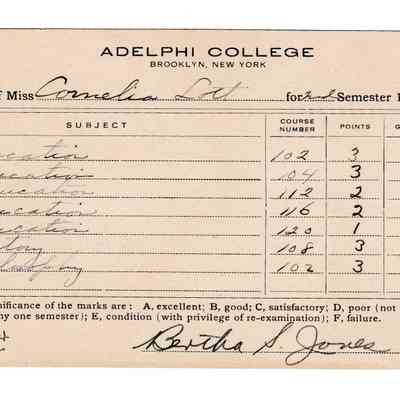 ADELPHI COLLEGE
BROOKLYN, NEW YORK
f Miss Cornelia Lott for 2nd Semester 1
SUBJECT COURSE NUMBER POINTS G
ucation 102 3
ucation 104 3
ucation 112 2
ucation 116 2
ucation 120 1
story 108 3
losophy 102 3
nificance of the marks are : A, excellent; B, good; C, satisfactory; D, poor (not
ny one semester); E, condition (with privilege of re-examination); F, failure.
Bertha S. Jones